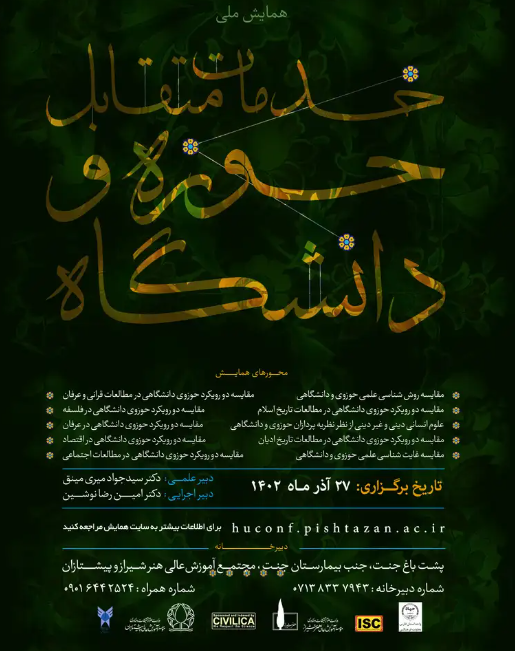 همایش ملی
خدمات متقابل
حوزه و
دانشگاه
محورهای همایش
مقایسه روش شناسی علمی حوزوی و دانشگاهی
مقایسه دو رویکرد حوزوی دانشگاهی در مطالعات قرآنی و عرفان
مقایسه دو رویکرد حوزوی دانشگاهی در مطالعات تاریخ اسلام
مقایسه دو رویکرد حوزوی دانشگاهی در فلسفه
علوم انسانی دینی و غیر دینی از نظر نظریه پردازان حوزوی و دانشگاهی
مقایسه دو رویکرد حوزوی دانشگاهی در عرفان
مقایسه دو رویکرد حوزوی دانشگاهی در مطالعات تاریخ ادیان
مقایسه دو رویکرد حوزوی دانشگاهی در اقتصاد
مقایسه غایت شناسی علمی حوزوی و دانشگاهی
مقایسه دو رویکرد حوزوی دانشگاهی در مطالعات اجتماعی
تاریخ برگزاری: ۲۷ آذر ماه ۱۴۰۲
دبیر علمی: دکتر سیدجواد میری مینق
دبیر اجرایی: دکتر امین رضا نوشین
برای اطلاعات بیشتر به سایت همایش مراجعه کنید huconf.pishtazan.ac.ir
دبیرخانه
پشت باغ جنت، جنب بیمارستان جنت، مجتمع آموزش عالی هنر شیراز و پیشتازان
شماره دبیرخانه: ۰۷۱۳۸۳۳۷۹۴۳
شماره همراه: ۰۹۰۱۶۴۴۲۵۲۴
CIVILICA
ISC